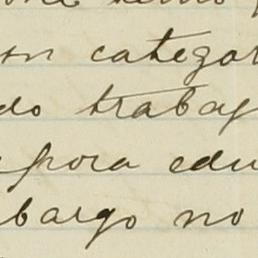 con categor
do trabaj
pora edu
bargo no